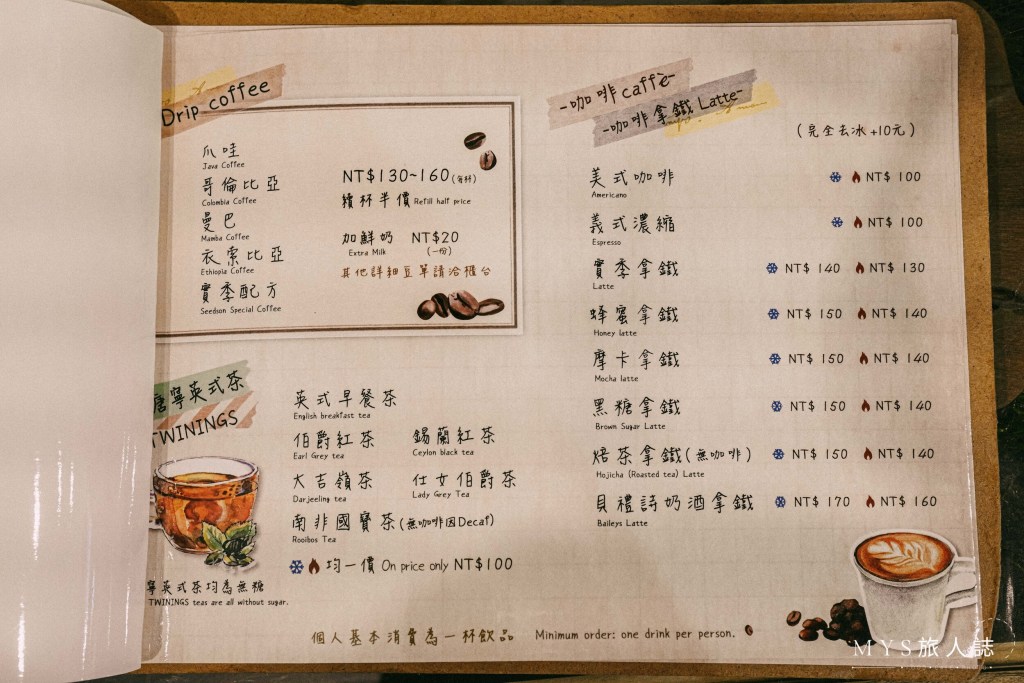 Drip coffee
爪哇
Java Coffee
哥倫比亞
Colombia Coffee
曼巴
Mamba Coffee
衣索比亞
Ethiopia Coffee
寶季配方
Seedson Special Coffee
NT$130~160(每杯)
續杯半價 Refill half price
加鮮奶 NT$20
Extra Milk (一份)
其他詳細豆單請洽櫃台
唐寧英式茶
TWININGS
英式早餐茶
English breakfast tea
伯爵紅茶 錫蘭紅茶
Earl Grey tea Ceylon black tea
大吉嶺茶 仕女伯爵茶
Darjeeling tea Lady Grey Tea
南非國寶茶(無咖啡因Decaf)
Rooibos Tea
均一價 On price only NT$100
寧英式茶均為無糖
TWININGS teas are all without sugar.
-咖啡caffè-
-咖啡拿鐵 Latte-
(完全去冰+10元)
美式咖啡 NT$ 100
Americano
義式濃縮 NT$ 100
Espresso
寶季拿鐵 NT$ 140 NT$ 130
Latte
蜂蜜拿鐵 NT$ 150 NT$ 140
Honey latte
摩卡拿鐵 NT$ 150 NT$ 140
Mocha latte
黑糖拿鐵 NT$ 150 NT$ 140
Brown Sugar Latte
焙茶拿鐵(無咖啡) NT$ 150 NT$ 140
Hojicha (Roasted tea) Latte
貝禮詩奶酒拿鐵 NT$ 170 NT$ 160
Baileys Latte
個人基本消費為一杯飲品 Minimum order: one drink per person.
MYS旅人誌